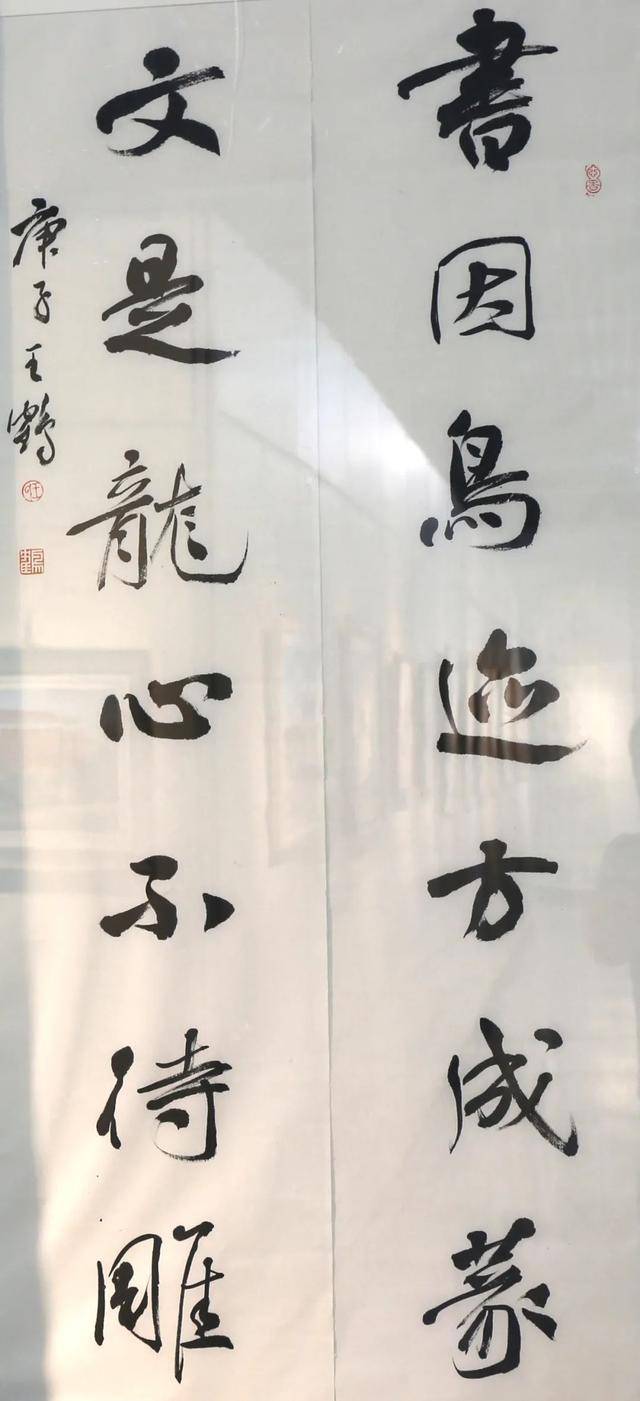 書因鳥迹方成篆
文是龍心不待雕
庚子王鶴